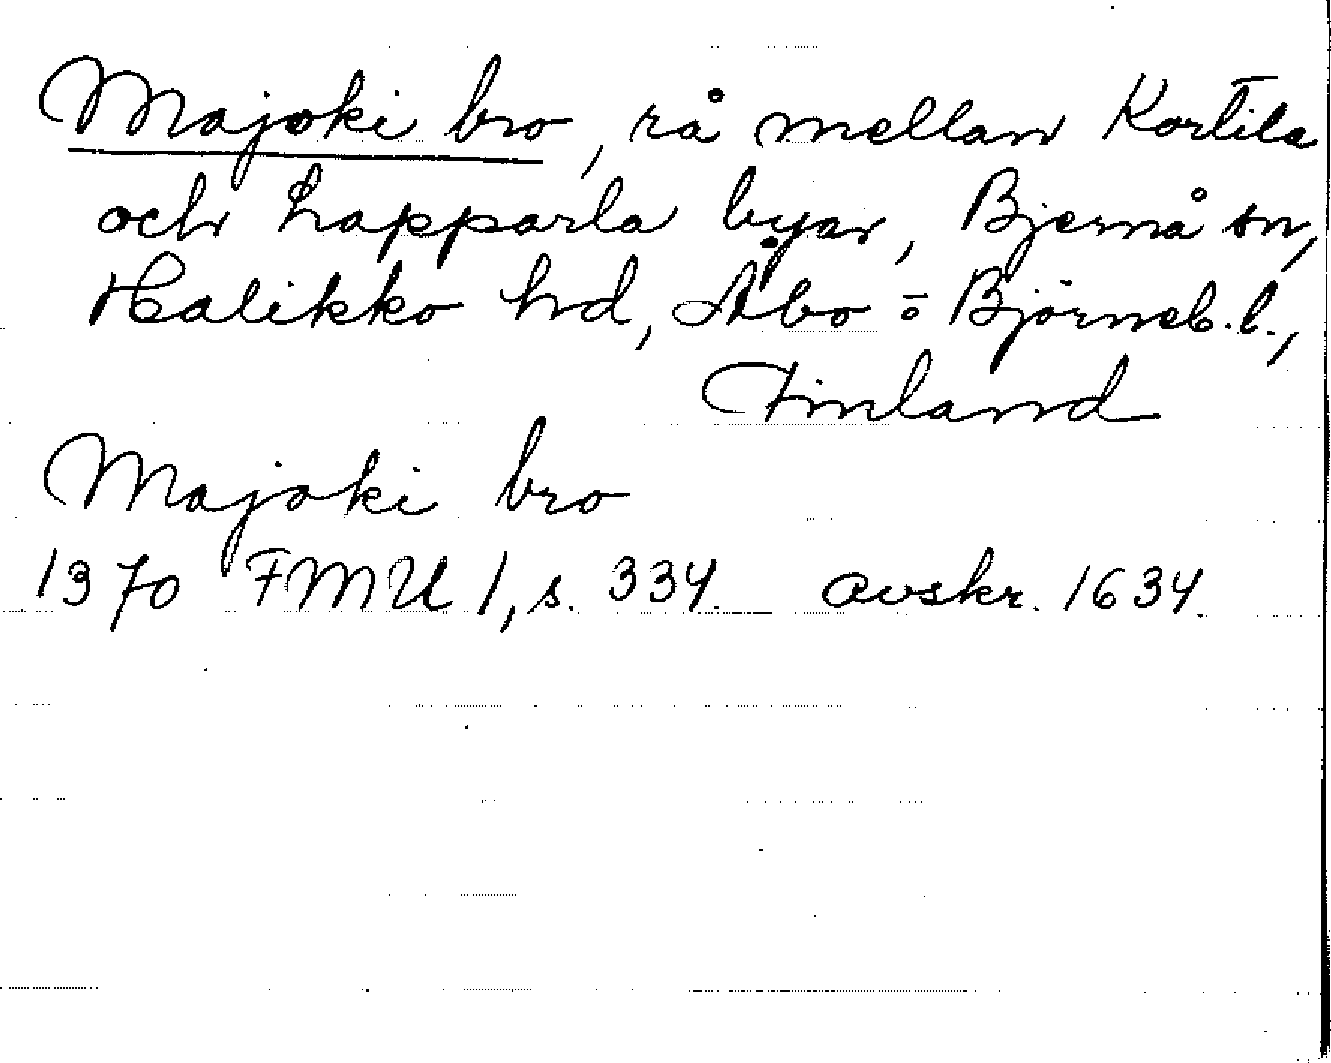 Majoki bro, rå mellan Kortila
och Lapparla byar, Bjernå sn,
Halikko hd, Åbo - o Björneb. l.,
Finland
Majoki bro
1370 FMU 1, s. 334. avskr. 1634.